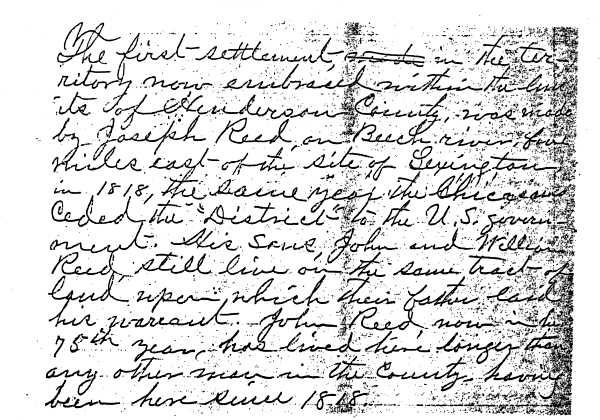 The first settlement made in the ter-
ritory now embraced within the lim-
its of Henderson County, was made
by Joseph Reed, on Beech river, five
miles east of the site of Lexington
in 1818, the same year the Chicasaws
Ceded the "District" to the U.S. govern-
ment. His Sons, John and William
Reed, still live on the same tract of
land upon which their father laid
his warrant. John Reed, now in his
75th year, has lived here longer than
any other man in the County, having
been here since 1818.